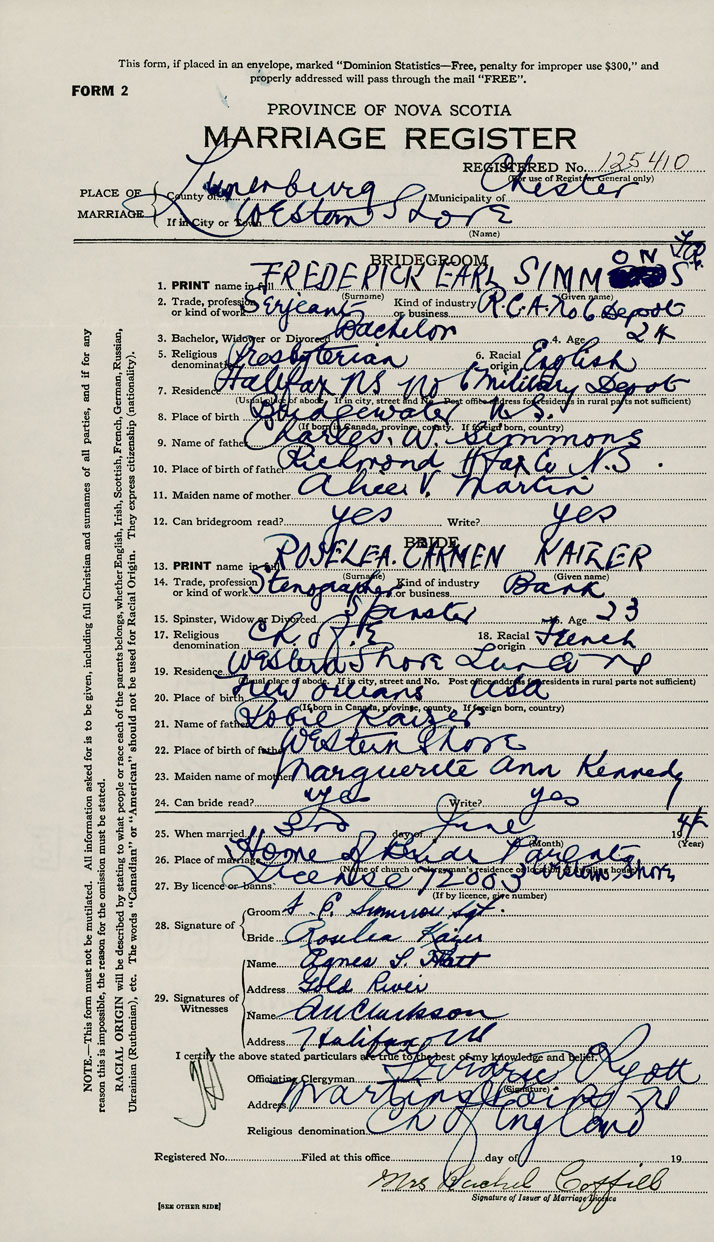 This form, if placed in an envelope, marked “Dominion Statistics—Free, penalty for improper use $300,” and
properly addressed will pass through the mail “FREE”.
FORM 2
PROVINCE OF NOVA SCOTIA
MARRIAGE REGISTER
REGISTERED No. 125410
(For use of Registrar General only)
PLACE OF MARRIAGE
County of Lunenburg Municipality of Chester
If in City or Town Western Shore
(Name)
BRIDEGROOM
1. PRINT name in full FREDERICK EARL SIMMONS
(Surname) (Given name)
2. Trade, profession or kind of work Serjeant Kind of industry or business R.C.A. No 6 Depot
3. Bachelor, Widower or Divorced Bachelor 4. Age 24
5. Religious denomination Presbyterian 6. Racial origin English
7. Residence Halifax NS No 6 Military Depot
(Usual place of abode. If in city, street and No. Post office address for residents in rural parts not sufficient)
8. Place of birth Bridgewater N.S.
(If born in Canada, province, county. If foreign born, country)
9. Name of father Charles. W. Simmons
10. Place of birth of father Richmond N.S.
11. Maiden name of mother Alice V. Martin
12. Can bridegroom read? yes Write? yes
BRIDE
13. PRINT name in full ROSELEA. CARMEN KAIZER
(Surname) (Given name)
14. Trade, profession or kind of work Stenographer Kind of industry or business Bank
15. Spinster, Widow or Divorced Spinster 16. Age 23
17. Religious denomination Ch of E 18. Racial origin French
19. Residence Western Shore Lun Co NS
(Usual place of abode. If in city, street and No. Post office address for residents in rural parts not sufficient)
20. Place of birth New Orleans USA
(If born in Canada, province, county. If foreign born, country)
21. Name of father Kaizer
22. Place of birth of father Western Shore
23. Maiden name of mother Marguerite Ann Kennedy
24. Can bride read? yes Write? yes
25. When married 3rd day of June 1944
(Month) (Year)
26. Place of marriage Home of Bride Parents Western Shore
(Name of church or clergyman's residence or location of dwelling house)
27. By licence or banns License 72003
(If by licence, give number)
28. Signature of
Groom F. E. Simmons Sgt.
Bride Roselea Kaizer
29. Signatures of Witnesses
Name Agnes L. Hatt
Address Gold River
Name Clarkson
Address Halifax NS
I certify the above stated particulars are true to the best of my knowledge and belief.
Officiating Clergyman Ryott
(Signature)
Address Martins Point NS
Religious denomination Ch of England
Registered No. Filed at this office day of 19
Mrs Rachel Coffill
Signature of Issuer of Marriage Licence
[SEE OTHER SIDE]
NOTE.—This form must not be mutilated. All information asked for is to be given, including full Christian and surnames of all parties, and if for any
reason this is impossible, the reason for the omission must be stated.
RACIAL ORIGIN will be described by stating to what people or race each of the parents belongs, whether English, Irish, Scottish, French, German, Russian,
Ukrainian (Ruthenian), etc. The words “Canadian” or “American” should not be used for Racial Origin. They express citizenship (nationality).